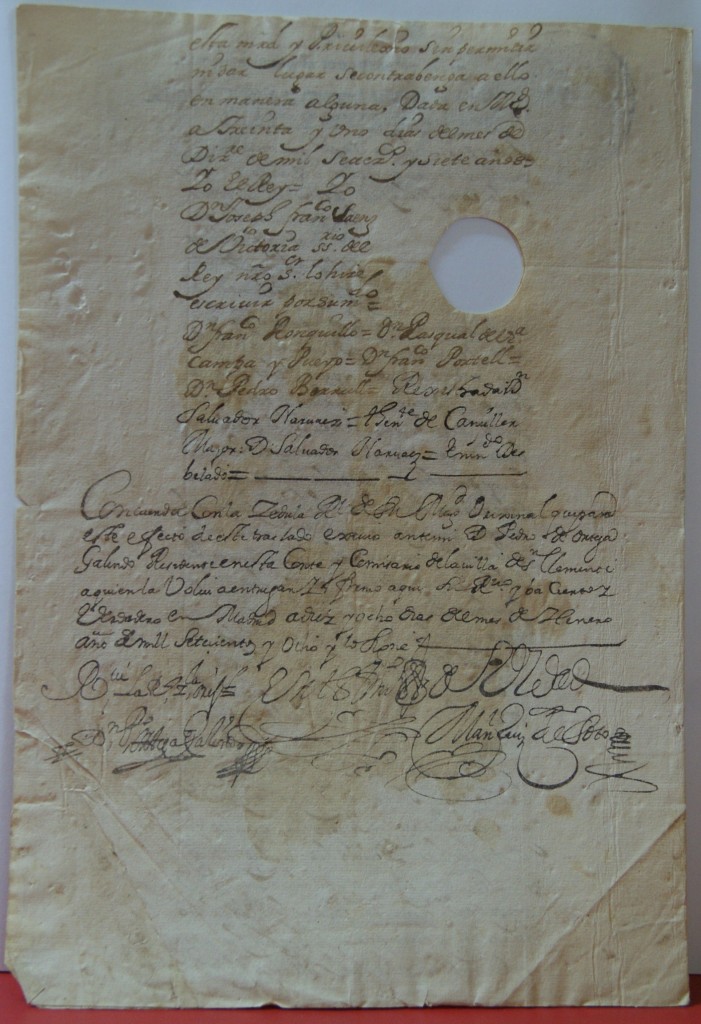 esta mrd y Privilegio sin permitir
ni dar lugar se contrabenga a ello
en manera alguna, Dada en Md.
a treinta y uno dias del mes de
Dizre de mil setezs. y siete años=
Yo El Rey= Yo
Dn Joseph franco Saenz
de Victoria ssrio del
Rey nro sr. lo hize
escrivir por su mdo=
Dn franco Ronquillo= Dn Pasqual de
Camba y Pueyo= Dn franco Portell=
Dn Pedro = Rexistrada Dn
Salvador Narvaez= thente de Canciller
Mayor: D. Salvador Narvaez=
Concuerda Con la Zedula Rl de su Magd Orixinal que para
este efecto de este traslado exivio ante mi D. Pedro de Ortega
Galindo Residente en esta Corte y Comisario de la villa de Sn Clemente
a quien la Volvi a entregar y firmo aqui su Rvo y ba Cierto y
Verdadero en Madrid a diez y ocho dias del mes de Henero
año de mil Setecientos y Ocho y lo signe
Dn Po Ortega Galindo